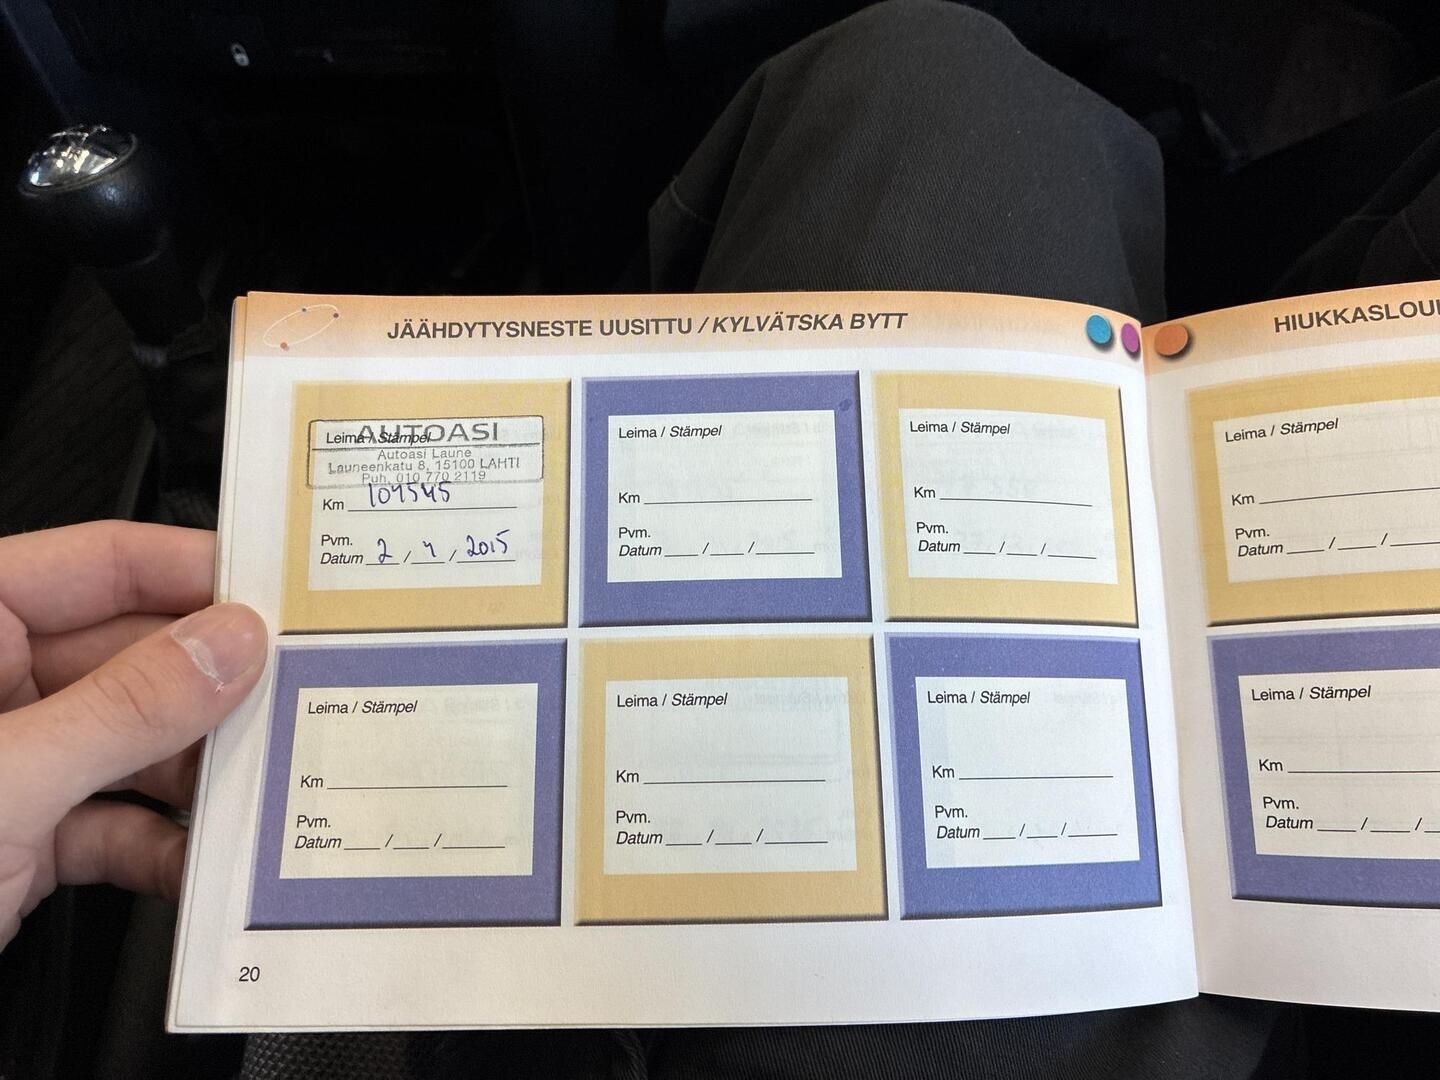 JÄÄHDYTYSNESTE UUSITTU / KYLVÄTSKA BYTT
AUTOASI
Leima / Stämpel
Autoasi Laune
Launeenkatu 8, 15100 LAHTI
Puh. 010 770 2119
Km 104545
Pvm.
Datum 2 / 4 / 2015
Leima / Stämpel
Km
Pvm.
Datum ___ / ___ / ______
Leima / Stämpel
Km
Pvm.
Datum ___ / ___ / ______
Leima / Stämpel
Km
Pvm.
Datum ___ / ___ / ______
Leima / Stämpel
Km
Pvm.
Datum ___ / ___ / ______
Leima / Stämpel
Km
Pvm.
Datum ___ / ___ / ______
20
HIUKKASLOU
Leima / Stämpel
Km
Pvm.
Datum ___ / ___ /
Leima / Stämpel
Km
Pvm.
Datum ___ / ___ /